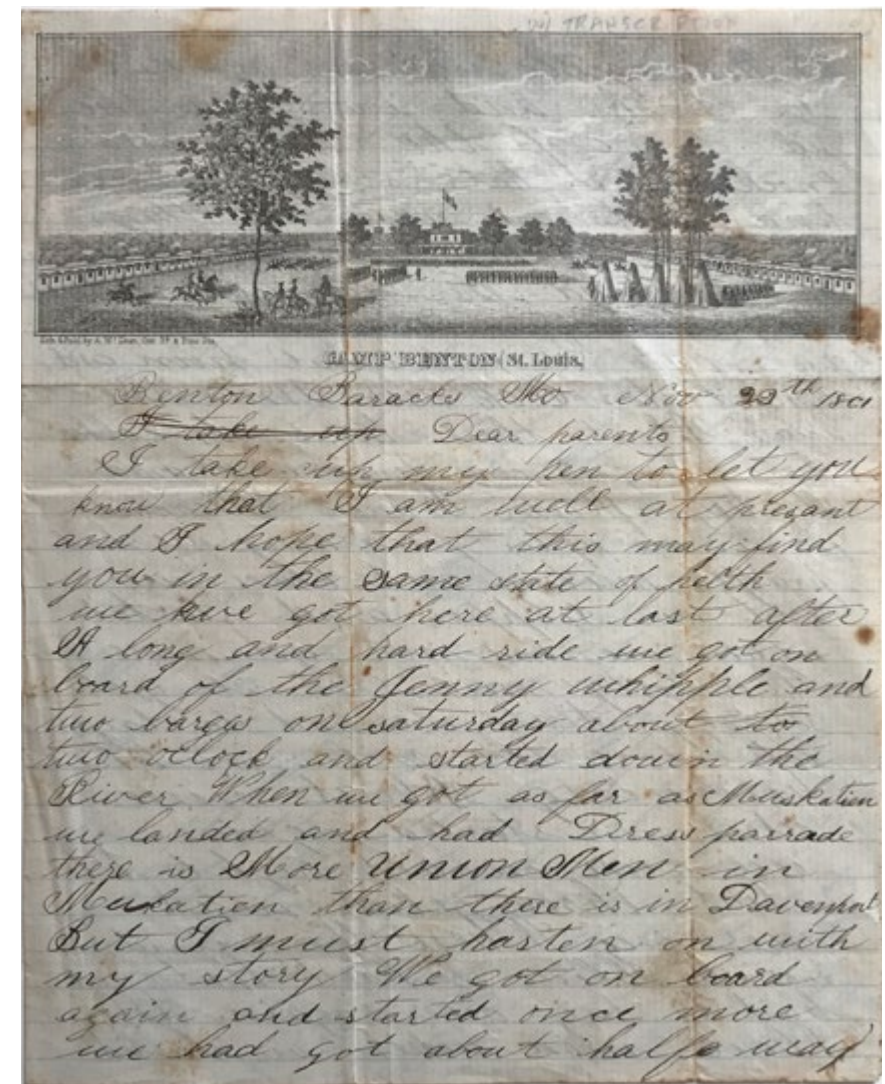 W/ TRANSCRIPTION
CAMP BENTON (St. Louis,
Benton Baracks Mo Nov 29th 1861
I take up Dear parents
I take up my pen to let you
know that I am well at presant
and I hope that this may find
you in the same state of helth
we have got here at last after
A long and hard ride we got on
board of the Jenny whipple and
two barges on saturday about to
two oclock and started down the
River When we got as far as Muskatien
we landed and had Dress parrade
there is More Union Men in
Muskatien than there is in Davenport
But I must hasten on with
my story We got on board
again and started once more
we had got about halfe way